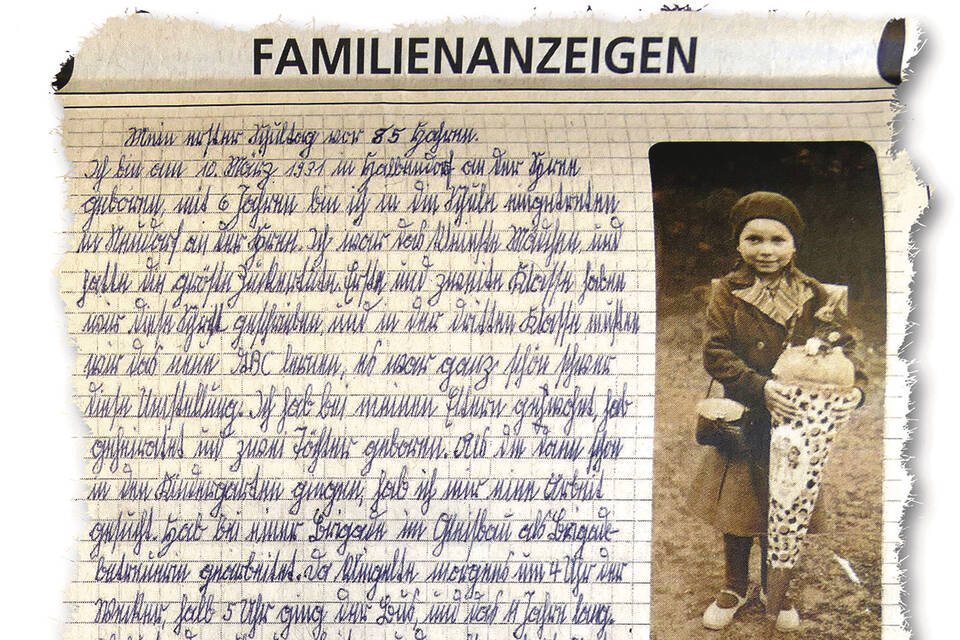 FAMILIENANZEIGEN
Mein erster Schultag vor 85 Jahren.
Ich bin am 10. März 1931 in Halbendorf an der Spree
geboren, mit 6 Jahren bin ich in die Schule eingetreten
in Neudorf an der Spree. Ich war das kleinste Mädchen und
hatte die größte Zuckertüte. Erste und zweite Klasse haben
wir diese Schrift geschrieben und in der dritten Klasse mußten
wir das neue ABC lernen, es war ganz schön schwer
diese Umstellung. Ich hab bei meinen Eltern gewohnt, hab
geheiratet und zwei Töchter geboren. Als die dann schon
in den Kindergarten gingen, hab ich mir eine Arbeit
gesucht. Hab bei einer Brigade im Gleisbau als Brigade-
betreuerin gearbeitet. Da klingelte morgens um 4 Uhr der
Wecker, halb 5 Uhr ging der Bus, und das 11 Jahre lang.